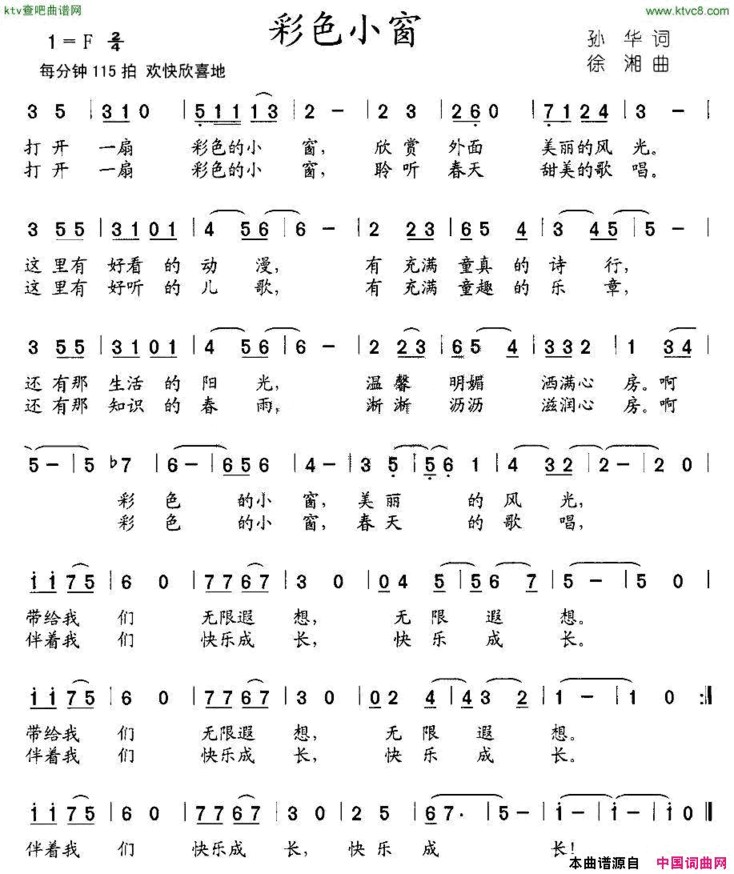 ktv查吧曲谱网
www.ktvc8.com
彩色小窗
1=F 2/4
孙 华 词
徐 湘 曲
每分钟115拍 欢快欣喜地
3 5 | 3 1 0 | 5 1 1 1 3 | 2 - | 2 3 | 2 6 0 | 7 1 2 4 | 3 - |
打 开 一扇 彩色的小 窗， 欣 赏 外面 美丽的风 光。
打 开 一扇 彩色的小 窗， 聆 听 春天 甜美的歌 唱。
3 5 5 | 3 1 0 1 | 4 5 6 | 6 - | 2 2 3 | 6 5 4 | 3 4 5 | 5 - |
这 里有 好看 的 动 漫， 有 充满 童真 的 诗 行，
这 里有 好听 的 儿 歌， 有 充满 童趣 的 乐 章，
3 5 5 | 3 1 0 1 | 4 5 6 | 6 - | 2 2 3 | 6 5 4 | 3 3 2 | 1 3 4 |
还 有那 生活 的 阳 光， 温 馨 明媚 洒满心 房。啊
还 有那 知识 的 春 雨， 淅 淅 沥沥 滋润心 房。啊
5 - | 5 ♭7 | 6 - | 6 5 6 | 4 - | 3 5 | 5 6 1 | 4 3 2 | 2 - | 2 0 |
彩 色 的小 窗，美 丽 的 风 光，
彩 色 的小 窗，春 天 的 歌 唱，
1 1 7 5 | 6 0 | 7 7 6 7 | 3 0 | 0 4 5 | 5 6 7 | 5 - | 5 0 |
带给我 们 无限遐 想， 无 限 遐 想。
伴着我 们 快乐成 长， 快 乐 成 长。
1 1 7 5 | 6 0 | 7 7 6 7 | 3 0 | 0 2 4 | 4 3 2 | 1 - | 1 0 :‖
带给我 们 无限遐 想， 无 限 遐 想。
伴着我 们 快乐成 长， 快 乐 成 长。
1 1 7 5 | 6 0 | 7 7 6 7 | 3 0 | 2 5 | 6 7· | 5 - | 1 - | 1 - | 1 0 ‖
伴着我 们 快乐成 长， 快 乐 成 长！
本曲谱源自 中国词曲网